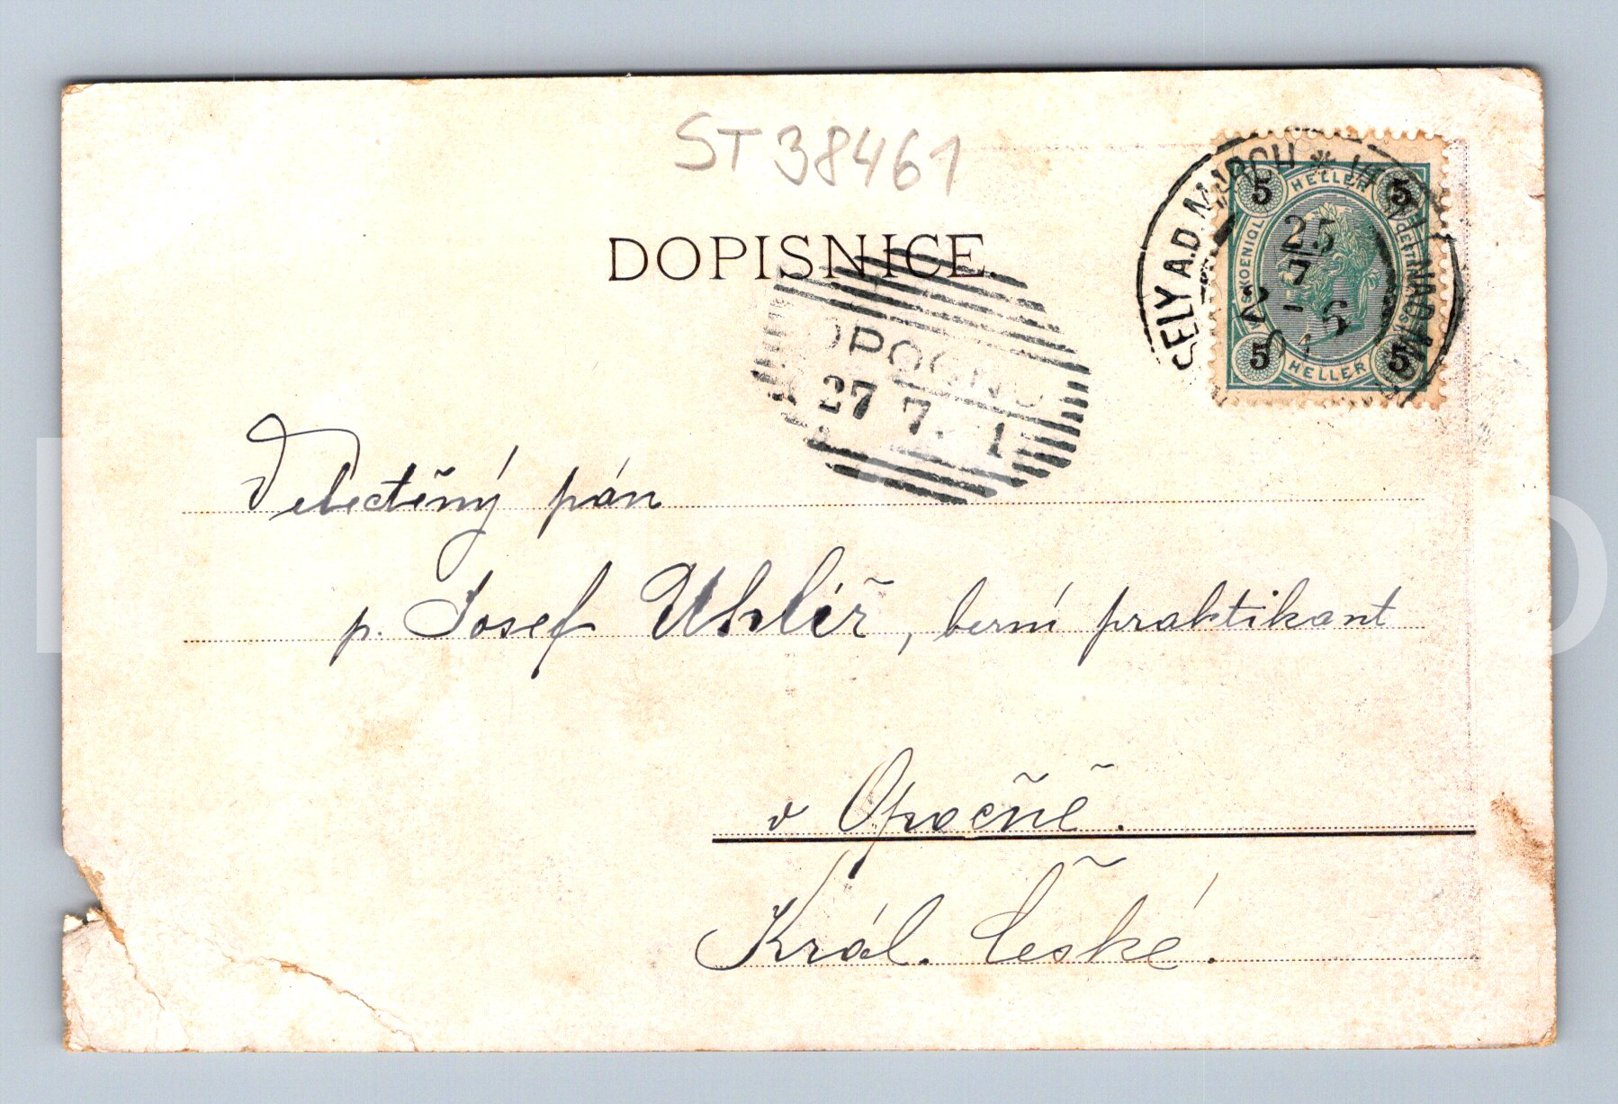 ST 38461
DOPISNICE
5 HELLER 5
25
7
5 HELLER 5
27 7
Velectěný pán
p. Josef Uhlíř, berní praktikant
v Opočně.
Král. České.